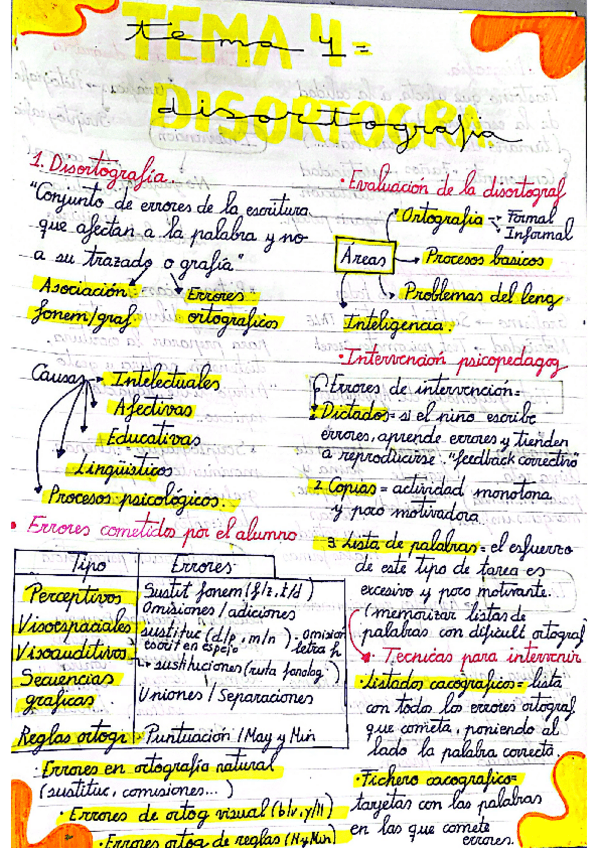 TEMA 4=
tema 4=
DISORTOGRA
disortografia
1. Disortografía.
"Conjunto de errores de la escritura
que afectan a la palabra y no
a su trazado o grafía"
Asociación
fonem/graf.
Errores
ortograficos
Causas
Intelectuales
Afectivas
Educativas
Lingüísticos
Procesos psicológicos.
• Errores cometidos por el alumno
Tipo
Errores
Perceptivos
Visoespaciales
Visoauditivos
Secuencias
graficas
Reglas ortogr
Sustit fonem (f/z, t/d)
Omisiones / adiciones
sustituc (d/p, m/n) . omision
escrit en espejo letra h
sustituciones (ruta fonolog.)
Uniones / Separaciones
Puntuación / May y Min
· Errores en ortografía natural
(sustituc, comisiones...)
· Errores de ortog visual (b/v, y/ll)
· Errores ortog de reglas (M y Min)
· Evaluación de la disortograf
Áreas
Ortografia
Formal
Informal
Procesos basicos
Problemas del leng
Inteligencia
· Intervención psicopedagog
Errores de intervención=
1. Dictados= si el niño escribe
errores, aprende errores y tienden
a reproducirse. "feedback correctivo"
2. Copias = actividad monotona
y poco motivadora
3. Lista de palabras= el esfuerzo
de este tipo de tarea es
excesivo y poco motivante.
(memorizar listas de
palabras con dificult ortograf
· Tecnicas para intervenir
· Listados cacograficos= lista
con todos los errores ortograf
que cometa, poniendo al
lado la palabra correcta.
· Fichero cacografico=
tarjetas con las palabras
en las que comete
errores.